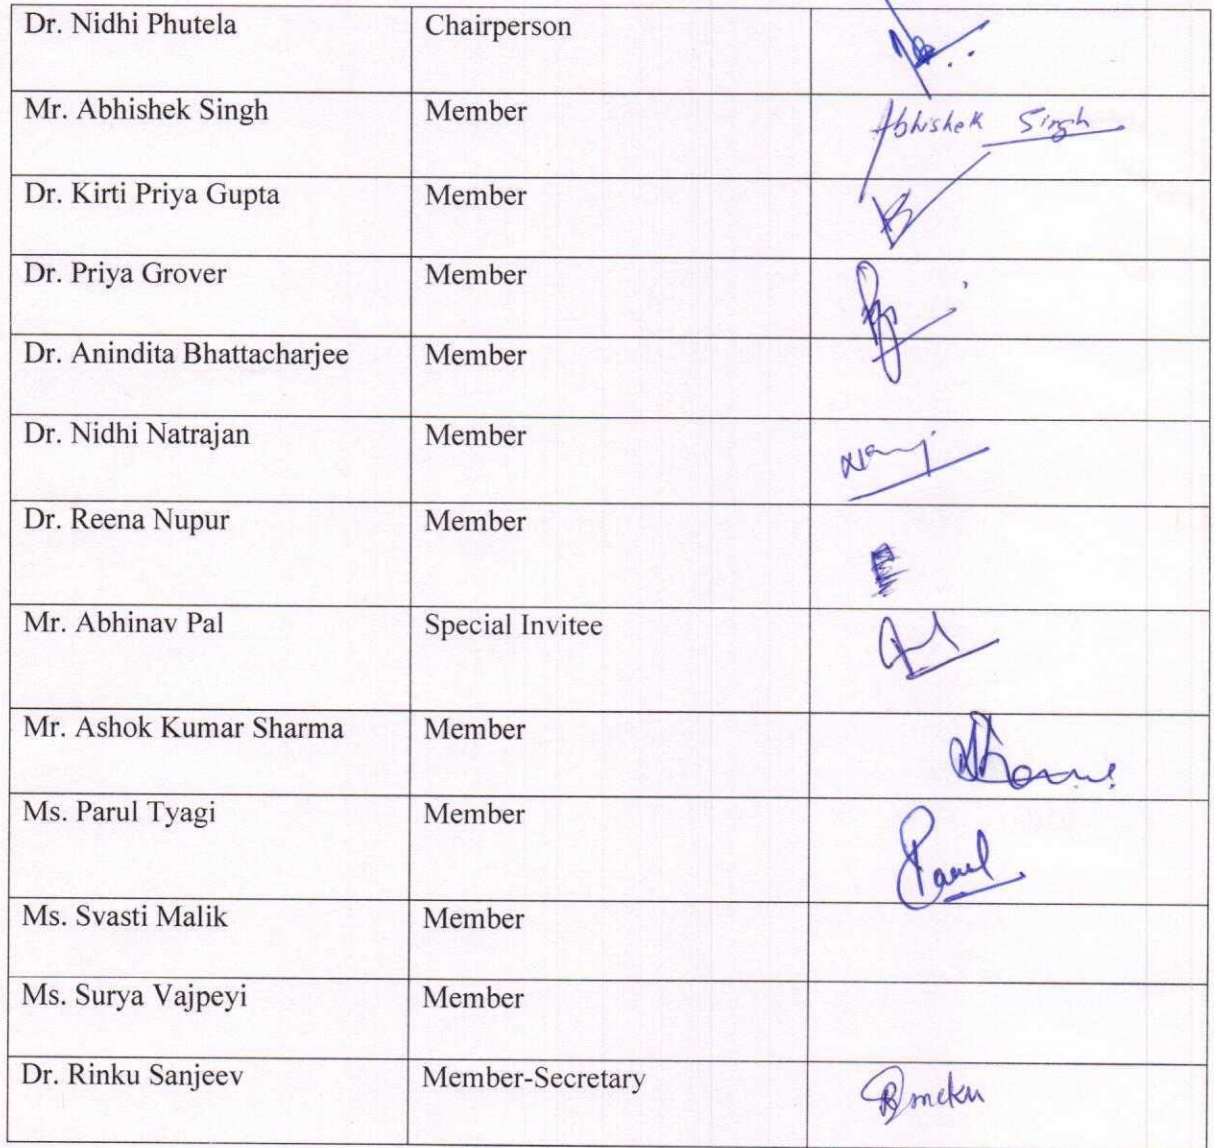 Dr. Nidhi Phutela Chairperson
Mr. Abhishek Singh Member Abhishek Singh
Dr. Kirti Priya Gupta Member
Dr. Priya Grover Member
Dr. Anindita Bhattacharjee Member
Dr. Nidhi Natrajan Member
Dr. Reena Nupur Member
Mr. Abhinav Pal Special Invitee
Mr. Ashok Kumar Sharma Member
Ms. Parul Tyagi Member Parul
Ms. Svasti Malik Member
Ms. Surya Vajpeyi Member
Dr. Rinku Sanjeev Member-Secretary